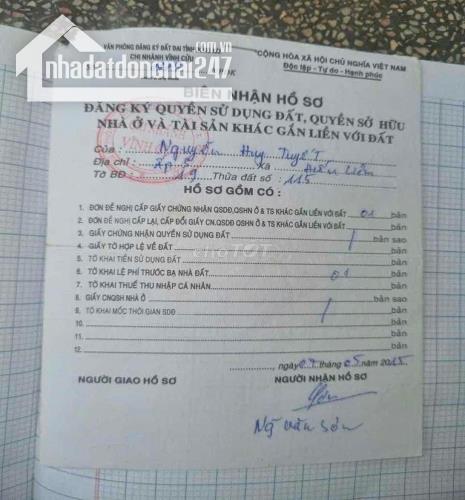 VĂN PHÒNG ĐĂNG KÝ ĐẤT ĐAI TỈNH
CHI NHÁNH VĨNH CỬU
CỘNG HÒA XÃ HỘI CHỦ NGHĨA VIỆT NAM
Độc lập - Tự do - Hạnh phúc
nhadatdonchat247
BIÊN NHẬN HỒ SƠ
ĐĂNG KÝ QUYỀN SỬ DỤNG ĐẤT, QUYỀN SỞ HỮU
NHÀ Ở VÀ TÀI SẢN KHÁC GẮN LIỀN VỚI ĐẤT
Của : Nguyễn Huy Tuyết
Địa chỉ : Ấp 5 Xã Hiếu Liêm
Tờ BĐ : 19 Thửa đất số : 115
HỒ SƠ GỒM CÓ :
1. ĐƠN ĐỀ NGHỊ CẤP GIẤY CHỨNG NHẬN QSDĐ,QSHN Ở & TS KHÁC GẮN LIỀN VỚI ĐẤT 01 bản
2. ĐƠN ĐỀ NGHỊ CẤP LẠI, CẤP ĐỔI GIẤY CN.QSDĐ QSHN Ở & TS KHÁC GẮN LIỀN VỚI ĐẤT bản
3. GIẤY CHỨNG NHẬN QUYỀN SỬ DỤNG ĐẤT / bản sao
4. GIẤY TỜ HỢP LỆ VỀ ĐẤT bản
5. TỜ KHAI TIỀN SỬ DỤNG ĐẤT bản
6. TỜ KHAI LỆ PHÍ TRƯỚC BẠ NHÀ ĐẤT 01 bản
7. TỜ KHAI THUẾ THU NHẬP CÁ NHÂN bản
8. GIẤY CNQSH NHÀ Ở bản sao
9. TỜ KHAI MỐC THỜI GIAN SDĐ / bản
10. bản
11. bản
12. bản
CHỢ TỐT
ngày 07 tháng 05 năm 2015
NGƯỜI GIAO HỒ SƠ NGƯỜI NHẬN HỒ SƠ
Ng Văn Sơn